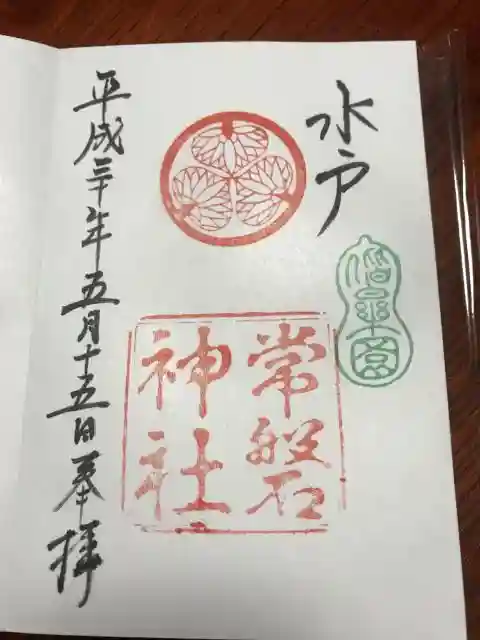 水戸
偕楽園
常磐
神社
平成三十年五月十五日奉拝